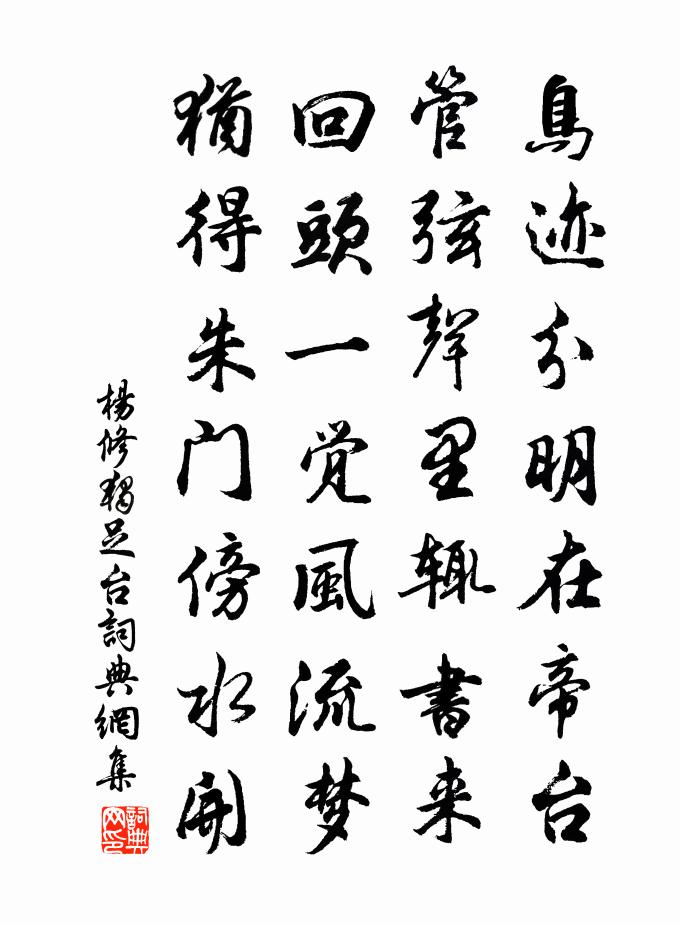 鳥迹分明在帝台
管弦聲里輙書来
回頭一觉風流梦
猶得朱门傍水開
楊修獨足台詞典網集
詞典网印